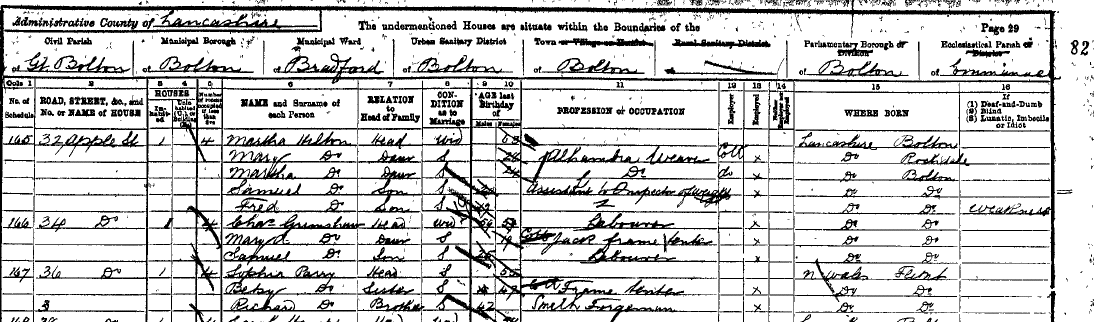 Administrative County of Lancashire
The undermentioned Houses are situate within the Boundaries of the
Page 29
82
Civil Parish Municipal Borough Municipal Ward Urban Sanitary District Town or Village or Hamlet Rural Sanitary District Parliamentary Borough or Division Ecclesiastical Parish or District
of Gt. Bolton of Bolton of Bradford of Bolton of Bolton of of Bolton of Emmanuel
Cols 1 2 3 4 5 6 7 8 9 10 11 12 13 14 15 16
No. of Schedule ROAD, STREET, &c., and No. or NAME of HOUSE HOUSES Inhabited NAME and Surname of each Person RELATION to Head of Family CONDITION as to Marriage AGE last Birthday of Males Females PROFESSION or OCCUPATION Employer Employed WHERE BORN (1) Deaf-and-Dumb (2) Blind (3) Lunatic, Imbecile or Idiot
165 32 Apple St 1 4 Martha Helton Head Wid Lancashire Bolton
Mary Do Daur S 24 Alhambra Weaver Cott x Do Rochdale
Martha Do Daur S 24 Do do x Do Bolton
Samuel Do Son S Assistant to Inspector of x Do Do
Fred Do Son S Do Do Weakness
166 34 Do 1 4 Chas Grimshaw Head Wid Labourer x Do Do
Mary A Do Daur S 19 Cott Jack frame tenter x Do Do
Samuel Do Son S Labourer x Do Do
167 36 Do 1 4 Sophia Parry Head S N Wales Flint
Betsy Do Sister S 47 Cott Frame tenter x Do Do
Richard Do Brother S 42 Smith Forgeman x Do Do